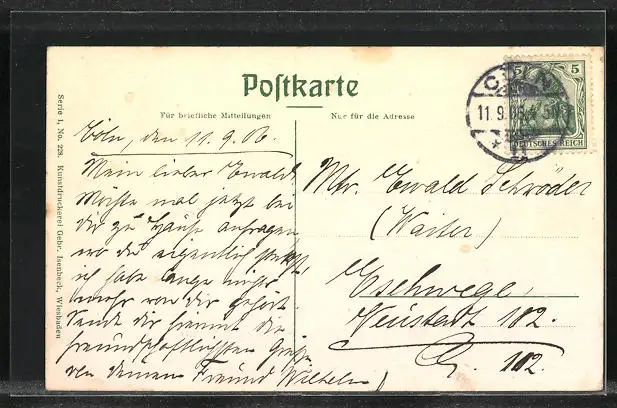 Postkarte
Für briefliche Mitteilungen
Nur für die Adresse
CÖLN
11.9.06
5
DEUTSCHES REICH
Serie I, No. 228. Kunstdruckerei Gebr. Isenbeck, Wiesbaden
Cöln, den 11.9.06.
Mein lieber Ewald
Möchte mal jetzt bei
dir zu Hause anfragen
wo du eigentlich steckst,
ich habe lange nichts
mehr von dir gehört.
Sende dir hiermit die
freundschaftlichsten Grüße
von deinem Freund Wilhelm
Mr. Ewald Schröder
(Waiter)
Eschwege
Neustadt 102.
102.